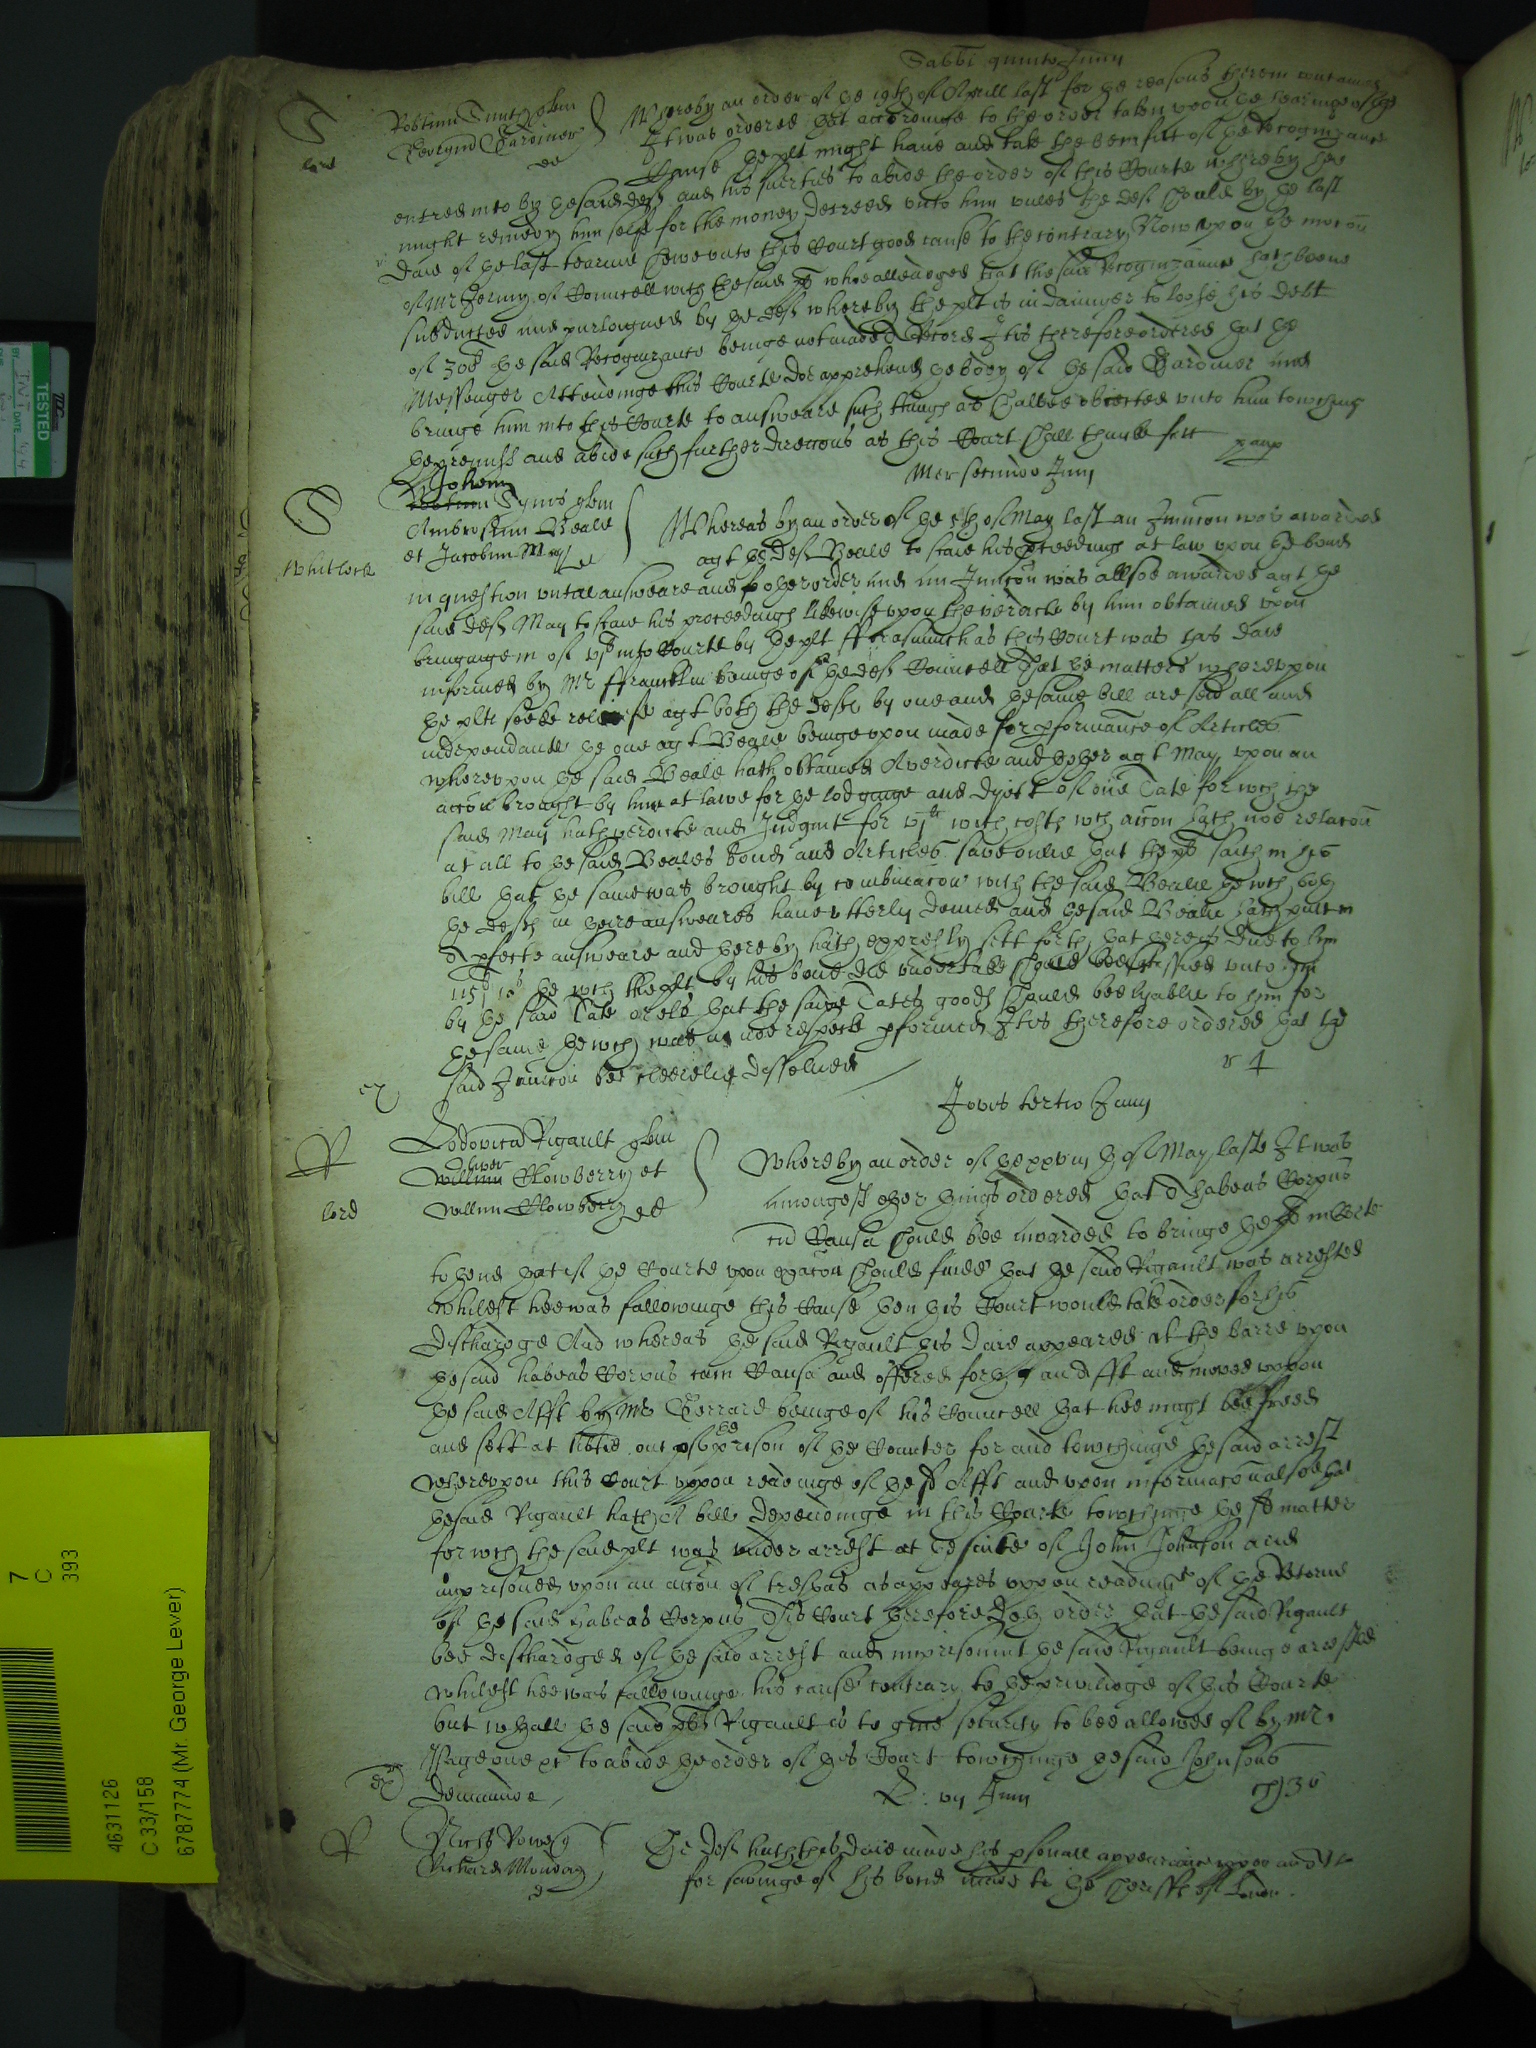 Sabbi quinto Junij
S
lord
Robtum Smith quer
Gardiner
def
Whereby an order of the 19th of Aprill last for the reasons therein contained
It was ordered that accordinge to the order taken upon the hearinge of the
Cause the plt might have and take the benifitt of the Recognizance
entred into by the said deft and his suerties to abide the order of this Courte whereby hee
might remedy him self for the money decreed unto him unles the deft should by the last
daie of the last tearme shewe unto this Court good cause to the contrary Now upon the mocon
of Mr Jermy of Councell with the said plt who alleadged that the said Recognizaunce hath beene
subducted and purloigned by the deft whereby the plt is in daunger to loose his debt
of 30li the said Recognizance beinge not made a Record It is therefore ordered that the
Messenger Attendinge this Courte doe apprehend the body of the said Gardiner and
bringe him into this Courte to answeare such things as shalbee obiected unto him towching
the premiss and abide such further direccons as this Court shall thinke fitt
Mer secundo Junij
S
Whitlock
Johem
Symes quer
Ambrosium Beale
et Jacobum May def
Whereas by an order of the of May last an Iniuncon was awarded
agt the deft Beale to staie his proceedings at law upon the bond
in question untill answeare and other order and an Iniuncon was allsoe awarded agt the
said deft May to staie his proceedings likewise upon the verdicte by him obtained upon
bringinge in of vjli into Courte by the plt fforasmuch as this Court was this daie
informed by Mr ffrancklin beinge of the defts Councell that the matters whereupon
the plt seeke releife agt both the defts by one and the same bill are severall and
independante the one agt Beale beinge upon made for pformance of Articles
whereupon the said Beale hath obtained A verdicte and the other agt May upon an
accon brought by him at lawe for the lodginge and dyett of one Tate for wch the
said May hath verdicte and Judgmt for vjli with costs wch accon hath noe relacon
at all to the said Beales bond and Articles save onlie that the plt saith in his
bill that the same was brought by combinacon with the said Beale the wch both
the defts in their answeares have utterly denied and the said Beale hath putt in
A pfecte answeare and thereby hath expressly sett forth that there is due to him
115li the wch the plt by his bond did undertake should bee satisfied unto him
by the said Tate or els that the said Tates goods should bee lyable to him for
the same the wch was in noe respecte pformed It is therefore ordered that the
said Iniuncon bee cleerelie dissolved
Jovis tertio Junij
R
lord
Lodovicu Rigault quer
Oliver
Willm Clowberry et
Willm Clowbery def
Whereby an order of the xxviijth of May laste It was
amongest other things ordered that A habeas Corpus
cu Causa should bee awarded to bringe the plt in Corte
to thend that if the Courte upon exacon should finde that the said Rigault was arrested
Whilest hee was followinge this Cause then this Court would take order for his
discharge And whereas the said Rigault this daie appeared at the barre upon
the said habeas Corpus cum Causa and offered forth an Afft and moved uppon
the said Afft by Mr Gerrard beinge of his Councell that hee might bee freed
and sett at libtie out of the prison of the Counter for and towchinge the said arrest
Whereupon this Court uppon readinge of the sd Afft and upon informacon alsoe that
the said Rigault hath A bill dependinge in this Courte towchinge the sd matter
for wch the said plt was under arrest at the suite of John Johnson and
imprisoned upon an accon of trespas as appeares uppon readinge of the Retorne
of the said habeas Corpus This Court therefore doth order that the said Rigault
bee discharged of the said arrest and imprisonmt the said Rigault beinge arrested
whilest hee was followinge his cause contrary to the priviledge of this Courte
but withall the said plt Rigault is to give security to bee allowed of by Mr
Page one &c to abide the order of this Court towchinge the said Johnsons
demaunde
vij Junij
R
Powell
Richard Munday
d
The deft hath this daie made his psonall appearance upon an Att
for savinge of his bond made to the Sheriffe of London.
TESTED
DATE
7
C
393
4631126
C 33/158
6787774 (Mr. George Lever)